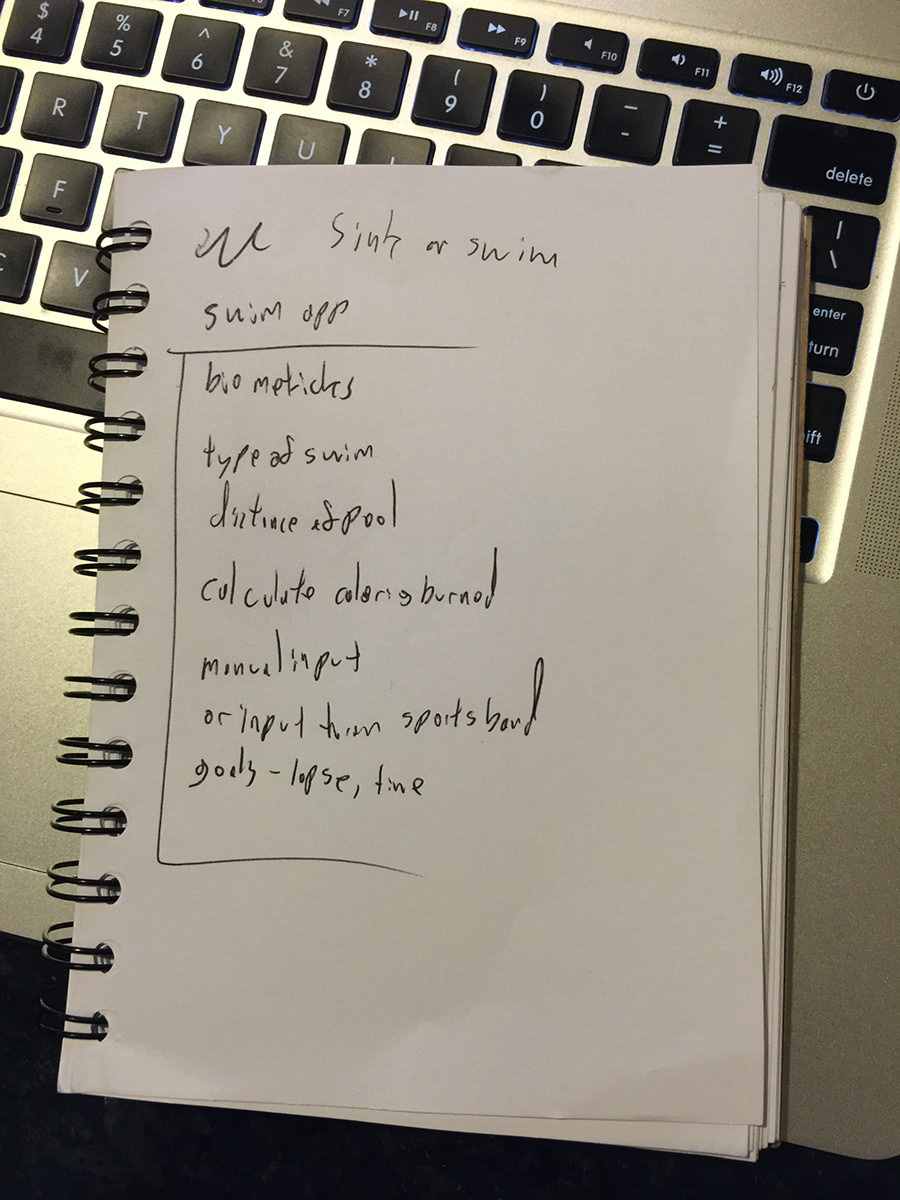 $ 4
% 5
^ 6
& 7
* 8
( 9
) 0
_ -
+ =
F7
F8
F9
F10
F11
F12
R
T
Y
U
delete
F
| \
C
V
enter
return
Sink or swim
swim app
bio meticks
type of swim
distince of pool
calculate caloris burned
manual input
or input from sportsband
goals - lapse, time